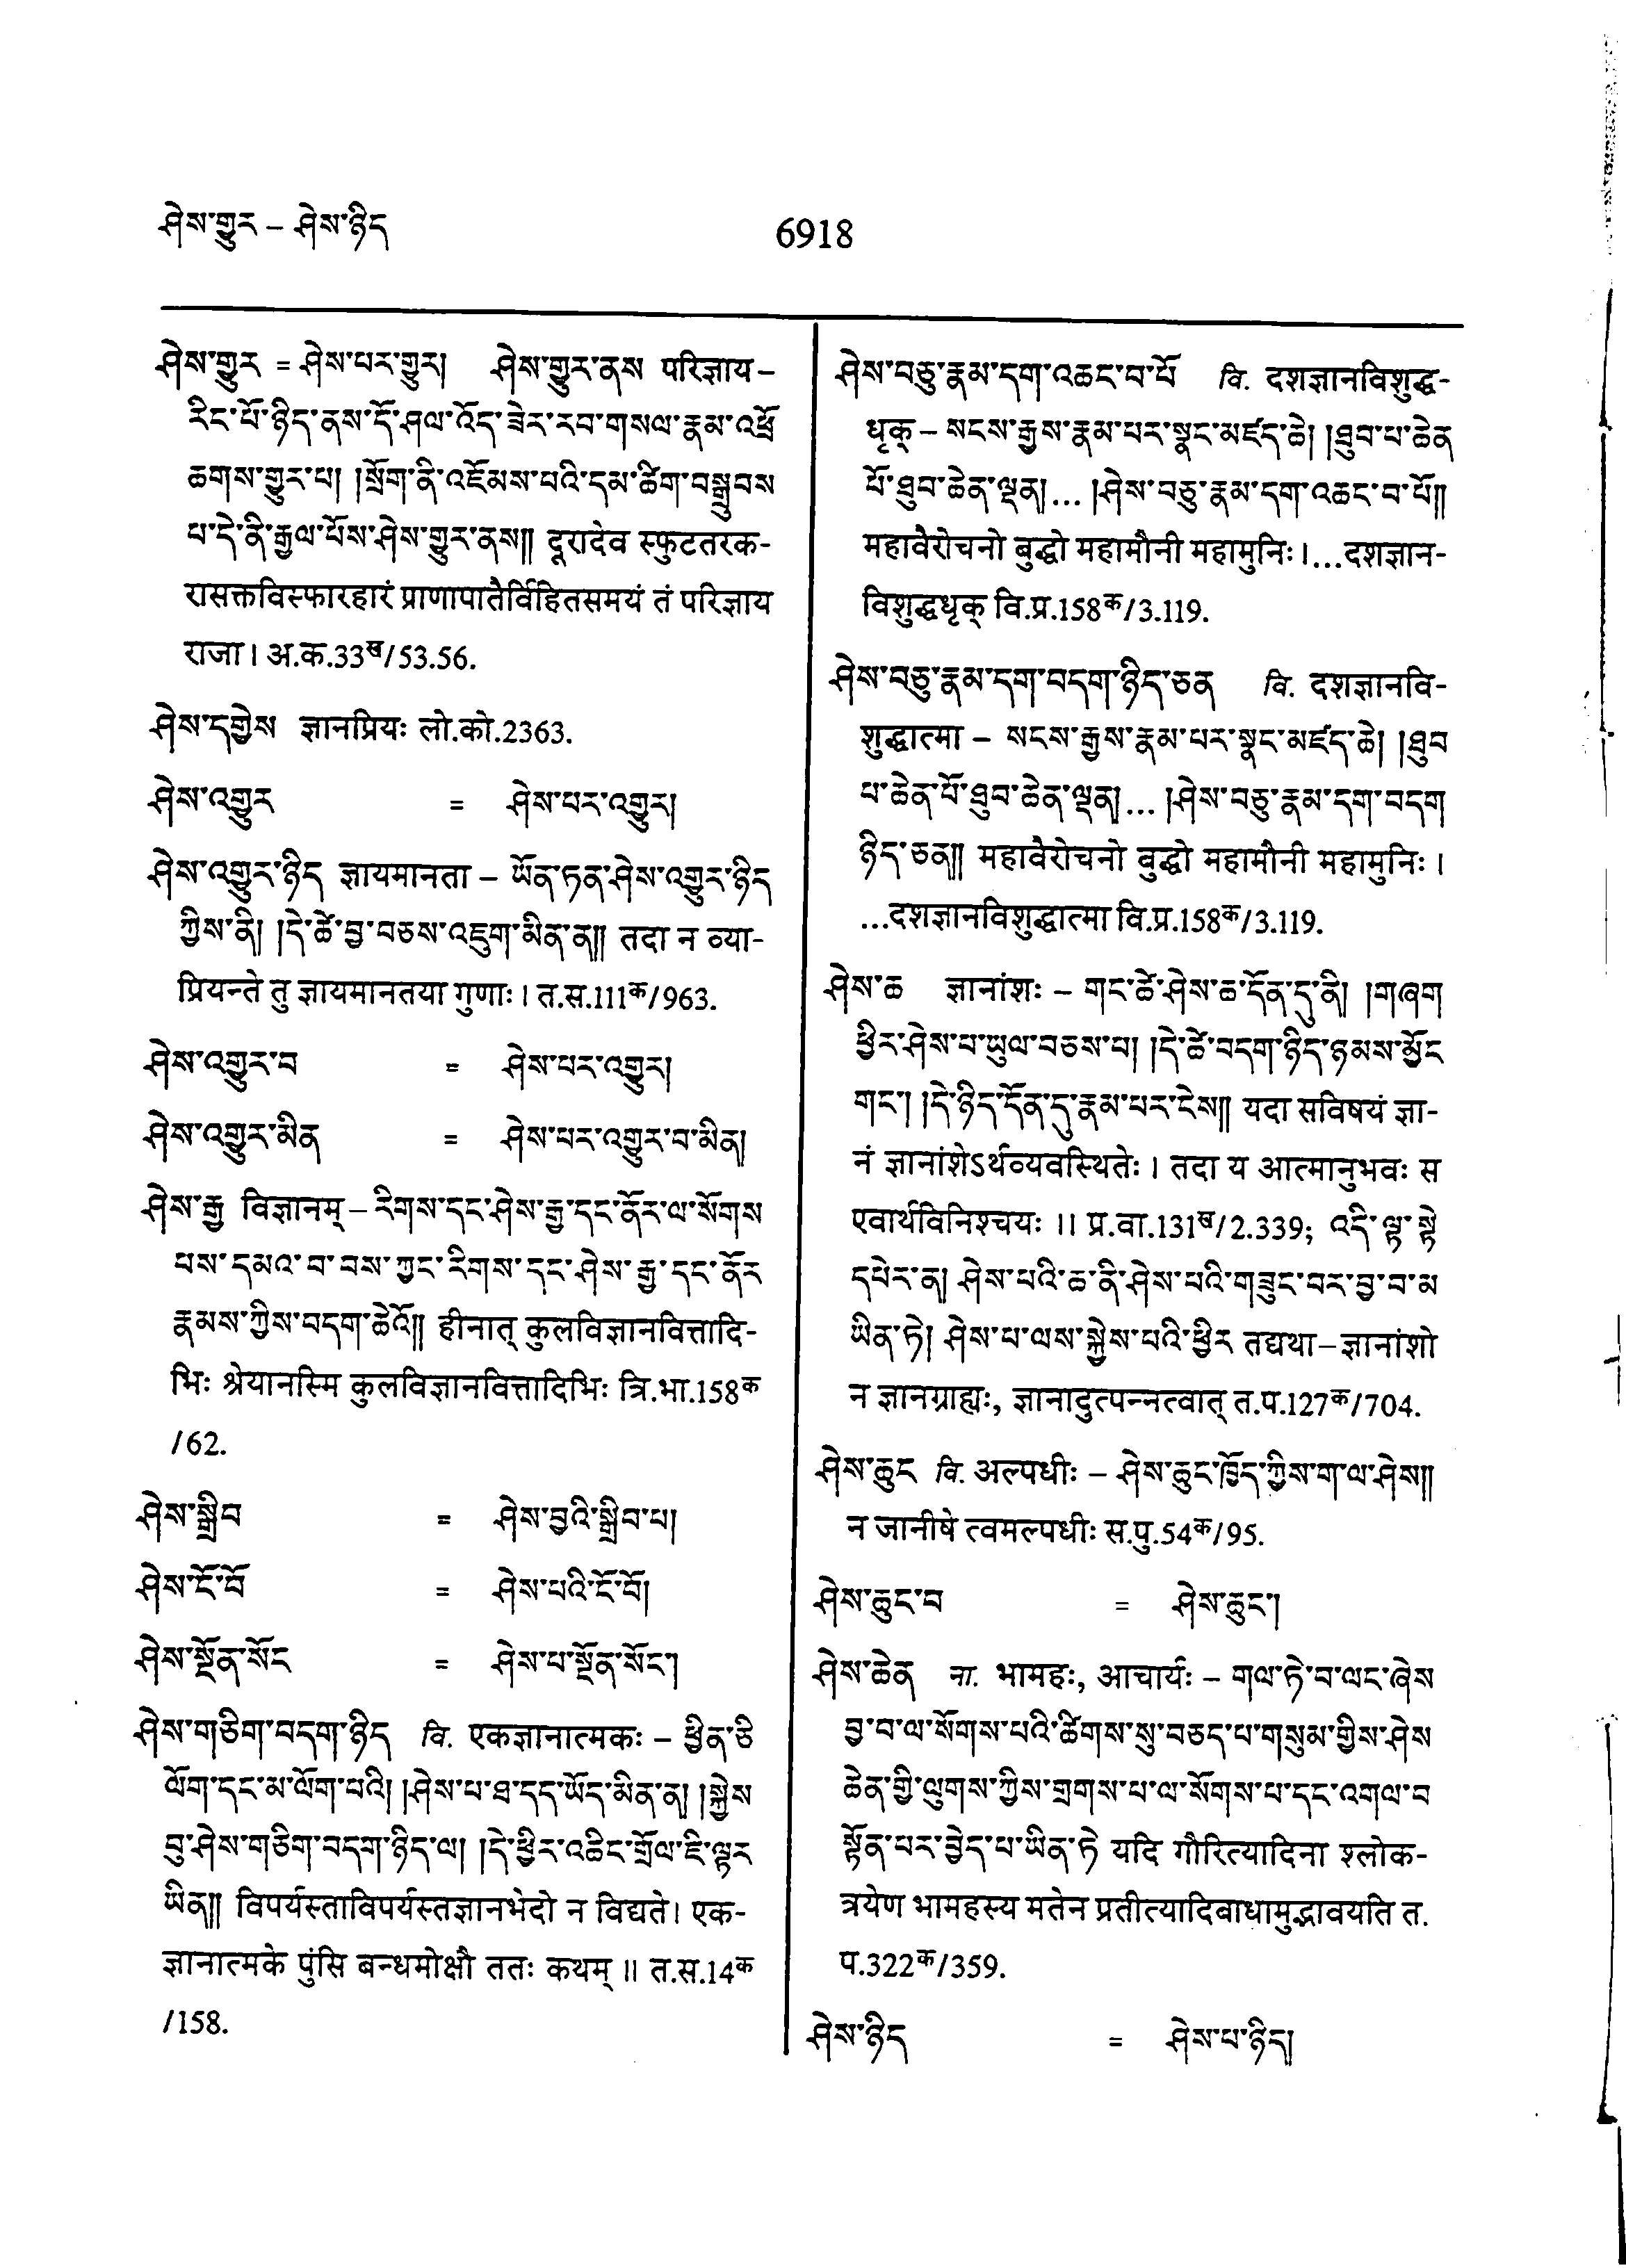 ཤེས་གྱུར – ཤེས་ཉིད
6918
ཤེས་གྱུར = ཤེས་པར་གྱུར། ཤེས་གྱུར་ནས परिज्ञाय–
རིང་པོ་ཉིད་ནས་དོ་ཤལ་འོད་ཟེར་རབ་གསལ་རྣམ་འཕྲོ
ཆགས་གྱུར་པ། །སྲོག་ནི་འཇོམས་པའི་དམ་ཚིག་བསྒྲུབས
པ་དེ་ནི་རྒྱལ་པོས་ཤེས་གྱུར་ནས།། दूरादेव स्फुटतरक-
रासक्तविस्फारहारं प्राणापातैर्विहितसमयं तं परिज्ञाय
राजा। अ.क.33ख/53.56.
ཤེས་དགྱེས ज्ञानप्रियः लो.को.2363.
ཤེས་འགྱུར = ཤེས་པར་འགྱུར།
ཤེས་འགྱུར་ཉིད ज्ञायमानता – ཡོན་ཏན་ཤེས་འགྱུར་ཉིད
ཀྱིས་ནི། །དེ་ཚེ་བྱ་བཅས་འཇུག་མིན་ན།། तदा न व्या-
प्रियन्ते तु ज्ञायमानतया गुणाः। त.स.111क/963.
ཤེས་འགྱུར་བ = ཤེས་པར་འགྱུར།
ཤེས་འགྱུར་མིན = ཤེས་པར་འགྱུར་བ་མིན།
ཤེས་རྒྱ विज्ञानम् – རིགས་དང་ཤེས་རྒྱ་དང་ནོར་ལ་སོགས
པས་དམའ་བ་བས་ཀྱང་རིགས་དང་ཤེས་རྒྱ་དང་ནོར
རྣམས་ཀྱིས་བདག་ཆེའོ།། हीनात् कुलविज्ञानवित्तादि-
भिः श्रेयानस्मि कुलविज्ञानवित्तादिभिः त्रि.भा.158क
/62.
ཤེས་སྒྲིབ = ཤེས་བྱའི་སྒྲིབ་པ།
ཤེས་ངོ་བོ = ཤེས་པའི་ངོ་བོ།
ཤེས་སྔོན་སོང = ཤེས་པ་སྔོན་སོང་།
ཤེས་གཅིག་བདག་ཉིད वि. एकज्ञानात्मकः – ཕྱིན་ཅི
ལོག་དང་མ་ལོག་པའི། །ཤེས་པ་ཐ་དད་ཡོད་མིན་ན། །སྐྱེས
བུ་ཤེས་གཅིག་བདག་ཉིད་ལ། །དེ་ཕྱིར་འཆིང་གྲོལ་ཇི་ལྟར
ཡིན།། विपर्यस्ताविपर्यस्तज्ञानभेदो न विद्यते। एक-
ज्ञानात्मके पुंसि बन्धमोक्षौ ततः कथम्॥ त.स.14क
/158.
ཤེས་བཅུ་རྣམ་དག་འཆང་བ་པོ वि. दशज्ञानविशुद्ध-
धृक् – སངས་རྒྱས་རྣམ་པར་སྣང་མཛད་ཆེ། །ཐུབ་པ་ཆེན
པོ་ཐུབ་ཆེན་ལྡན།... །ཤེས་བཅུ་རྣམ་དག་འཆང་བ་པོ།།
महावैरोचनो बुद्धो महामौनी महामुनिः।...दशज्ञान-
विशुद्धधृक् वि.प्र.158क/3.119.
ཤེས་བཅུ་རྣམ་དག་བདག་ཉིད་ཅན वि. दशज्ञानवि-
शुद्धात्मा – སངས་རྒྱས་རྣམ་པར་སྣང་མཛད་ཆེ། །ཐུབ
པ་ཆེན་པོ་ཐུབ་ཆེན་ལྡན།... །ཤེས་བཅུ་རྣམ་དག་བདག
ཉིད་ཅན།། महावैरोचनो बुद्धो महामौनी महामुनिः।
...दशज्ञानविशुद्धात्मा वि.प्र.158क/3.119.
ཤེས་ཆ ज्ञानांशः – གང་ཚེ་ཤེས་ཆ་དོན་དུ་ནི། །གཞག
ཕྱིར་ཤེས་པ་ཡུལ་བཅས་པ། །དེ་ཚེ་བདག་ཉིད་ཉམས་མྱོང
གང་། །དེ་ཉིད་དོན་དུ་རྣམ་པར་ངེས།། यदा सविषयं ज्ञा-
नं ज्ञानांशेऽर्थव्यवस्थितेः। तदा य आत्मानुभवः स
एवार्थविनिश्चयः॥ प्र.वा.131ख/2.339; འདི་ལྟ་སྟེ
དཔེར་ན། ཤེས་པའི་ཆ་ནི་ཤེས་པའི་གཟུང་བར་བྱ་བ་མ
ཡིན་ཏེ། ཤེས་པ་ལས་སྐྱེས་པའི་ཕྱིར तद्यथा–ज्ञानांशो
न ज्ञानग्राह्यः, ज्ञानादुत्पन्नत्वात् त.प.127क/704.
ཤེས་ཆུང वि. अल्पधीः – ཤེས་ཆུང་ཁྱོད་ཀྱིས་ག་ལ་ཤེས།།
न जानीषे त्वमल्पधीः स.पु.54क/95.
ཤེས་ཆུང་བ = ཤེས་ཆུང་།
ཤེས་ཆེན ना. भामहः, आचार्यः – གལ་ཏེ་བ་ལང་ཞེས
བྱ་བ་ལ་སོགས་པའི་ཚིགས་སུ་བཅད་པ་གསུམ་གྱིས་ཤེས
ཆེན་གྱི་ལུགས་ཀྱིས་གྲགས་པ་ལ་སོགས་པ་དང་འགལ་བ
སྟོན་པར་བྱེད་པ་ཡིན་ཏེ यदि गौरित्यादिना श्लोक-
त्रयेण भामहस्य मतेन प्रतीत्यादिबाधामुद्भावयति त.
प.322क/359.
ཤེས་ཉིད = ཤེས་པ་ཉིད།